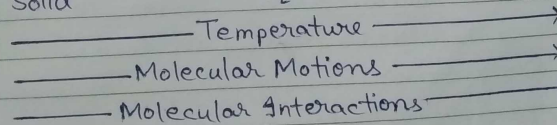 Solid
Temperature
Molecular Motions
Molecular Interactions